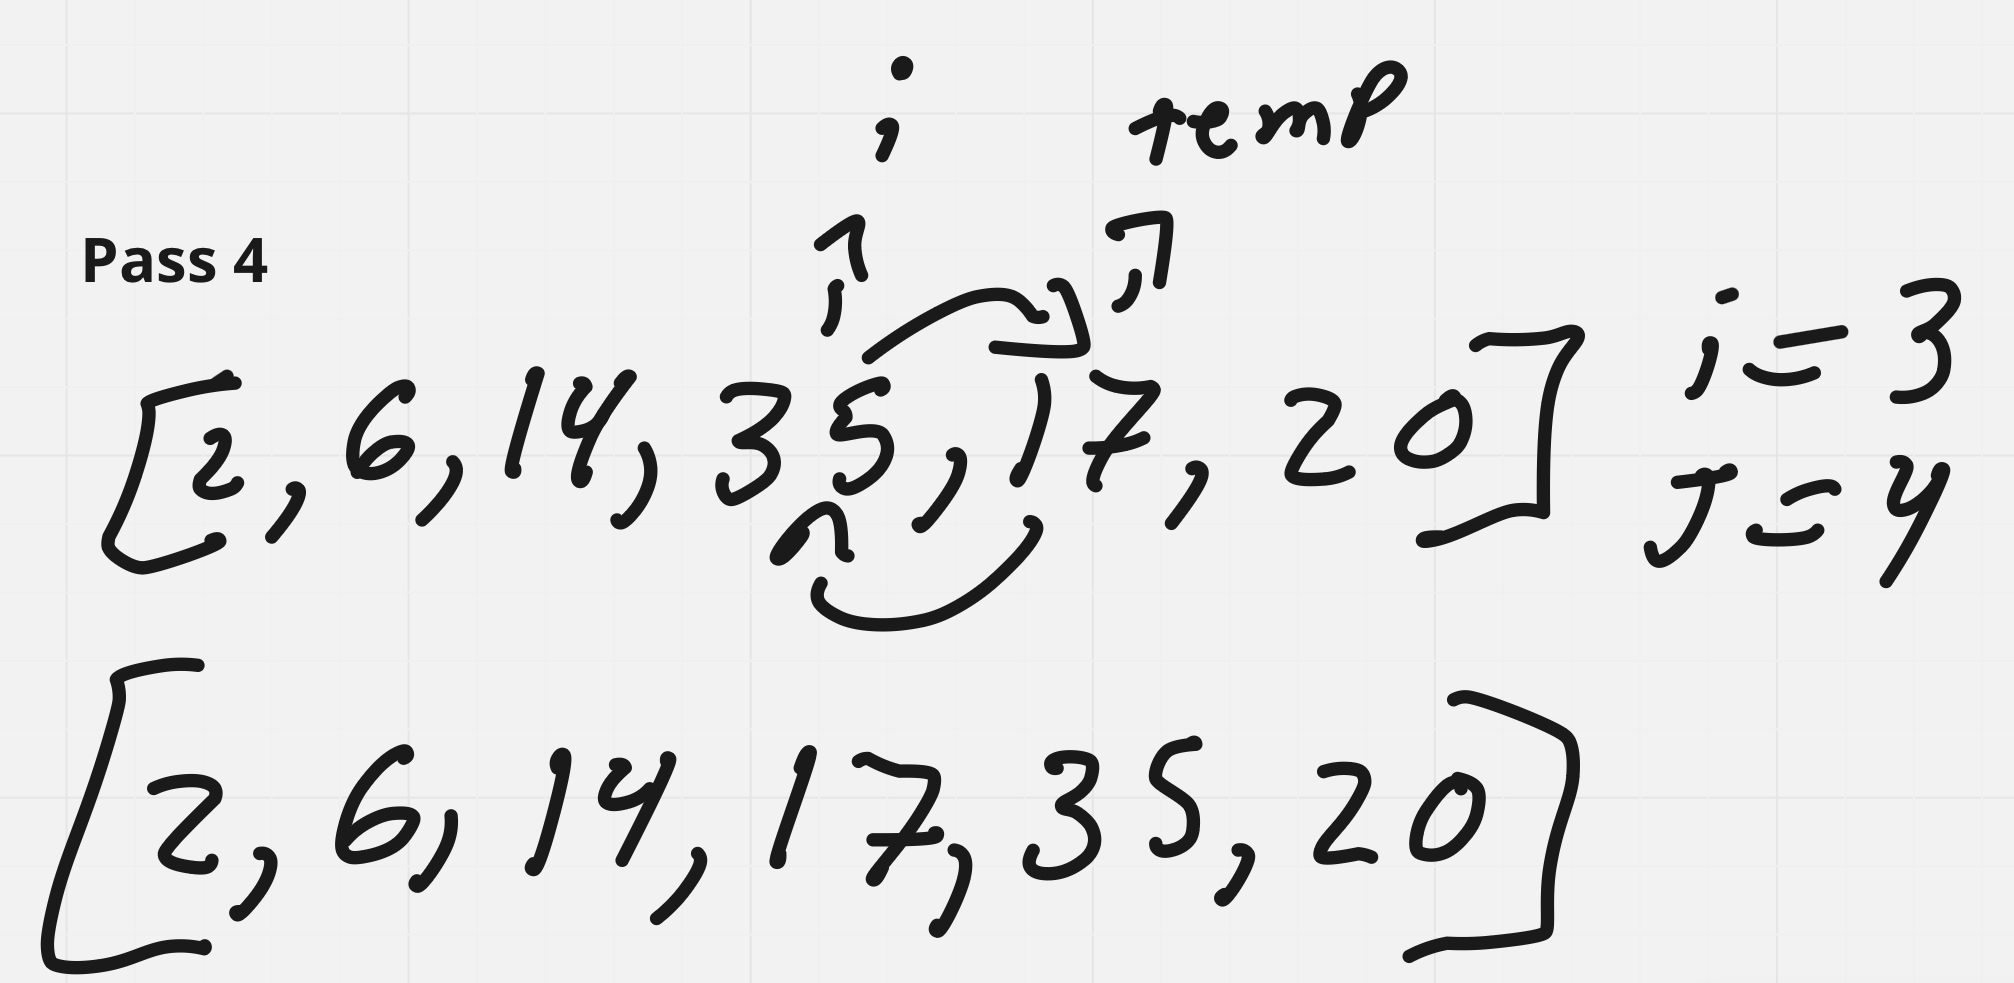 i temp
Pass 4
[2, 6, 14, 35, 17, 20] i = 3
J = 4
[2, 6, 14, 17, 35, 20]